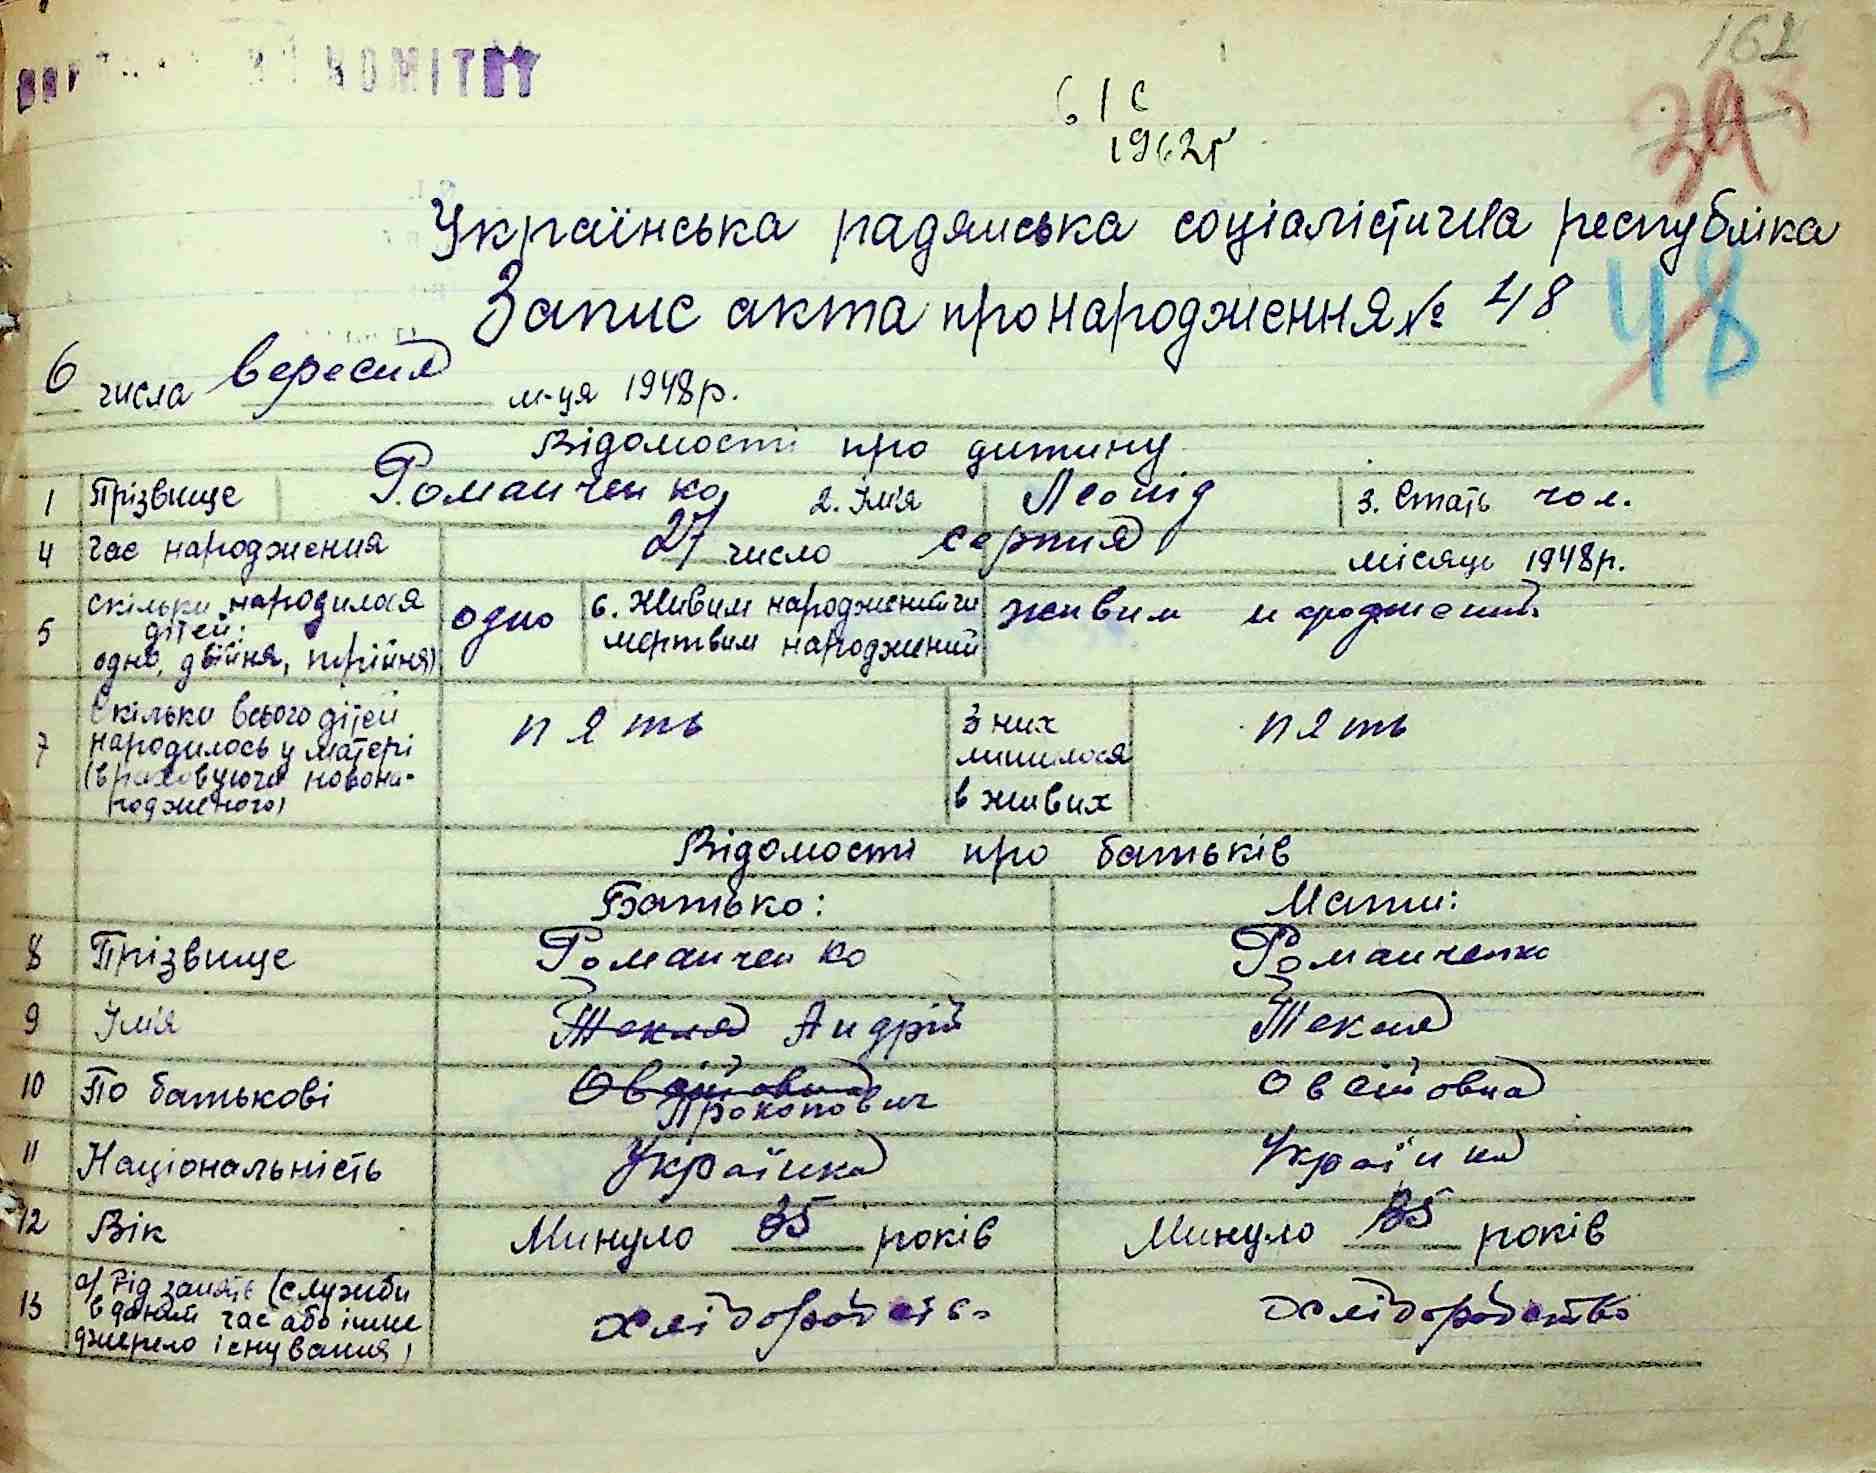 КОМІТЕТ
162
39
б/с
1962г
Українська радянська соціалістична республіка
Запис акта про народження № 48
48
6 числа вересня м-ця 1948р.
Відомості про дитину
1 Прізвище Романченко 2. Імʼя Леонід 3. Стать чол.
4 Час народження 27 число серпня місяця 1948р.
5 Скільки народилося дітей: одно, двійня, трійня) одно 6. Живим народжений чи мертвим народжений живим народжений
7 Скільки всього дітей народилось у матері (враховуючи новонародженого) пять З них лишилося в живих пять
Відомості про батьків
Батько: Мати:
8 Прізвище Романченко Романченко
9 Імʼя Текля Андрій Текля
10 По батькові Овсійовна Прокопович Овсійовна
11 Національність Українка Українка
12 Вік Минуло 35 років Минуло 35 років
13 а) Рід занять (служби в даний час або інше джерело існування) хліборобство хліборобство